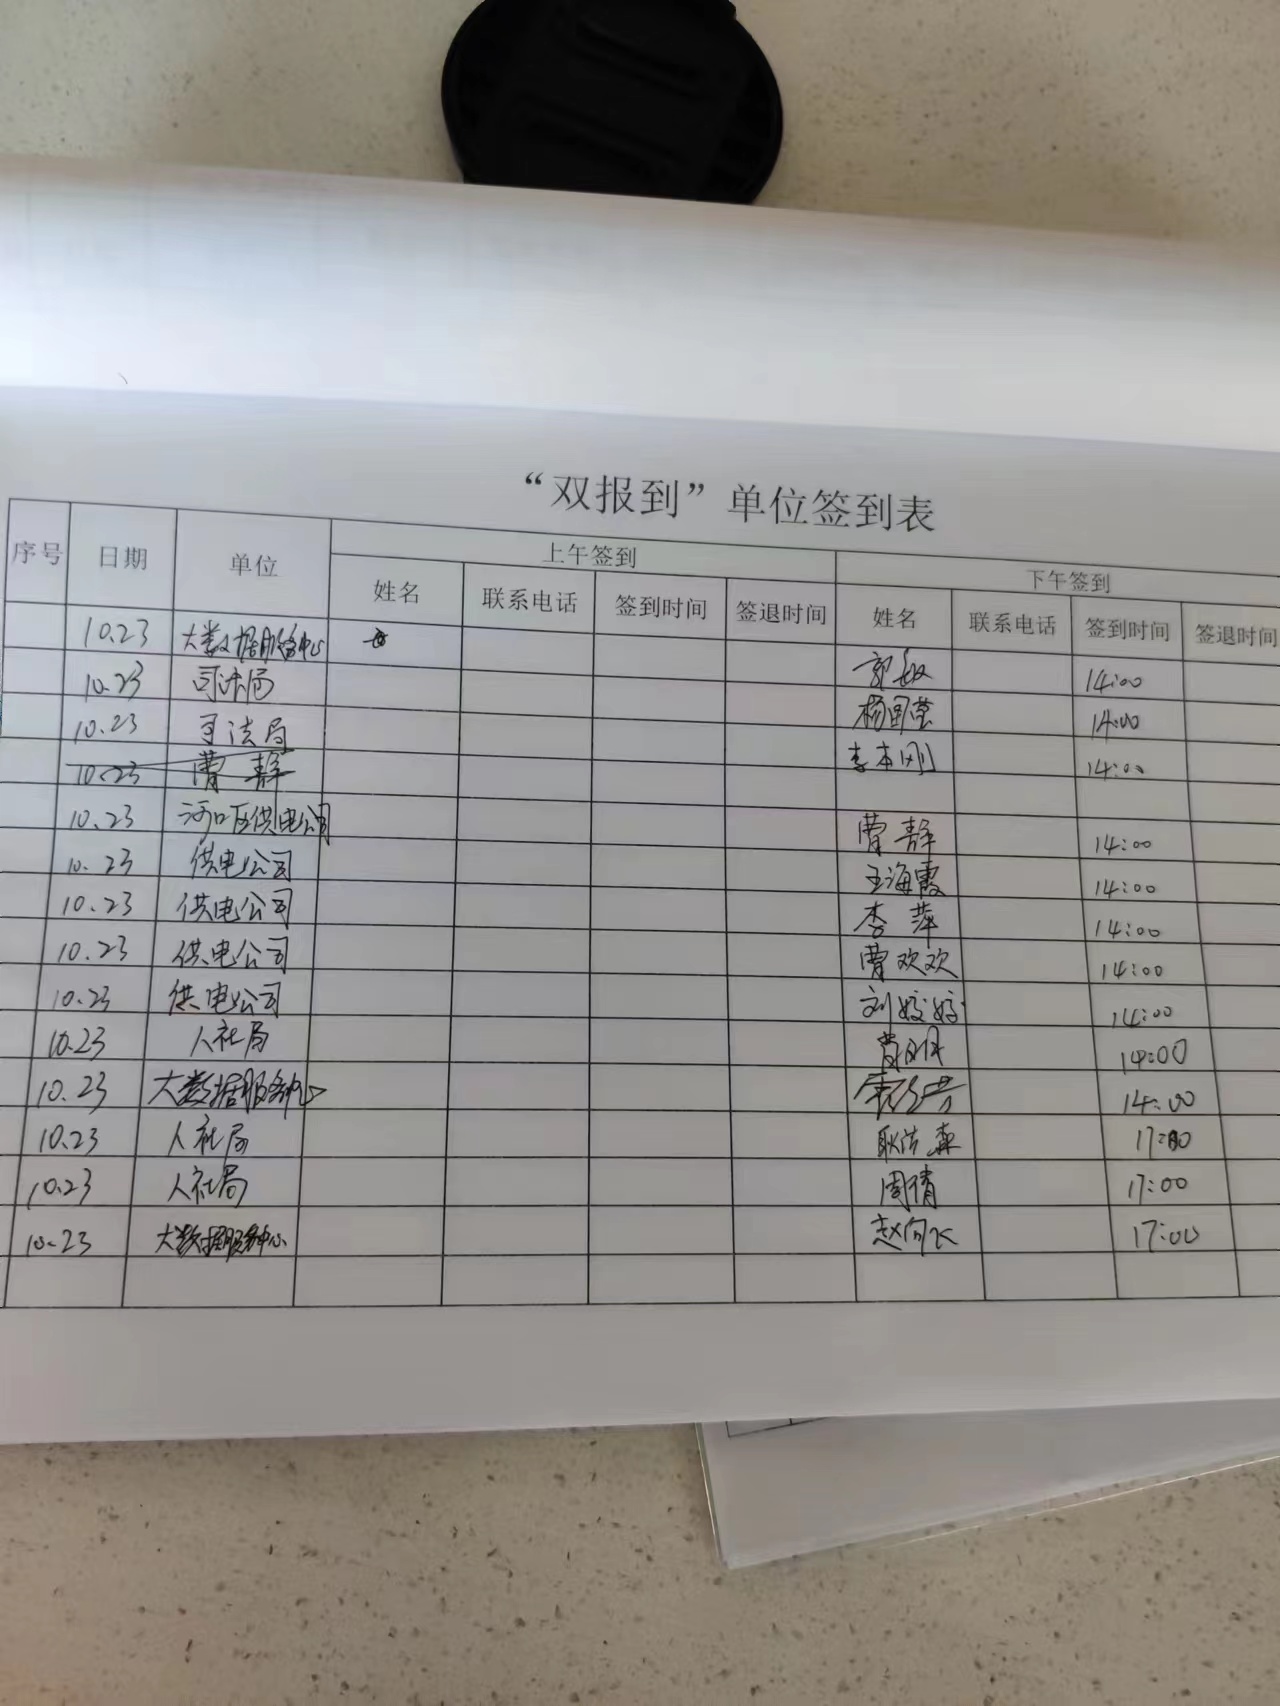 “双报到”单位签到表
序号 日期 单位 上午签到 下午签到
姓名 联系电话 签到时间 签退时间 姓名 联系电话 签到时间 签退时间
10.23 大数据服务中心 郭敏 14:00
10.23 司法局 杨国莹 14:00
10.23 司法局 李本刚 14:00
10.23 曹静
10.23 河口区供电公司 曹静 14:00
10.23 供电公司 王海霞 14:00
10.23 供电公司 李萍 14:00
10.23 供电公司 曹欢欢 14:00
10.23 供电公司 刘姣姣 14:00
10.23 人社局 14:00
10.23 大数据服务中心 14:00
10.23 人社局 耿浩森 17:00
10.23 人社局 周倩 17:00
10.23 大数据服务中心 赵向飞 17:00